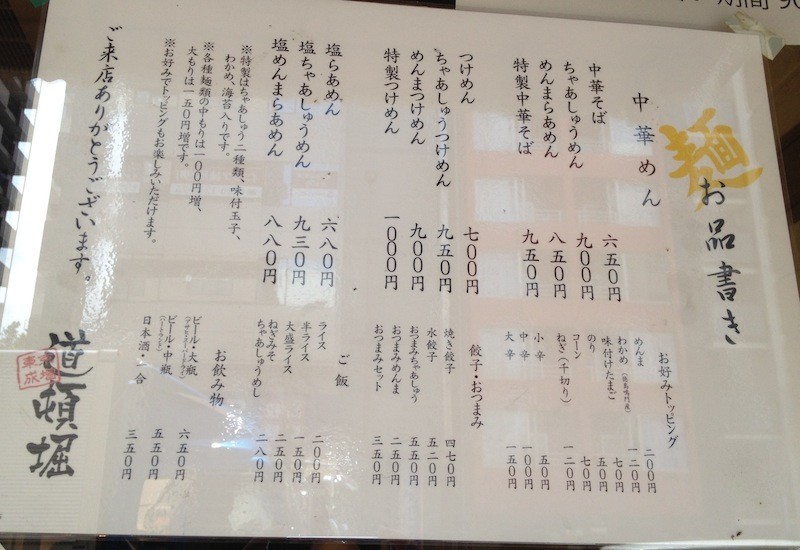 期間
麺お品書き
中華めん
中華そば 六五〇円
ちゃあしゅうめん 九〇〇円
めんまらあめん 八五〇円
特製中華そば 九五〇円
つけめん 七〇〇円
ちゃあしゅうつけめん 九五〇円
めんまつけめん 九〇〇円
特製つけめん 一〇〇〇円
塩らあめん 六八〇円
塩ちゃあしゅうめん 九三〇円
塩めんまらあめん 八八〇円
※特製はちゃあしゅう二種類、味付玉子、
わかめ、海苔入りです。
※各種麺類の中もりは一〇〇円増、
大もりは一五〇円増です。
※お好みでトッピングもお楽しみいただけます。
ご来店ありがとうございます。
お好みトッピング
めんま 二〇〇円
わかめ（徳島鳴門産） 一二〇円
味付けたまご 七〇円
のり 五〇円
コーン 七〇円
ねぎ（千切り） 一二〇円
小辛 五〇円
中辛 一〇〇円
大辛 一五〇円
餃子・おつまみ
焼き餃子 四七〇円
水餃子 五二〇円
おつまみちゃあしゅう 五五〇円
おつまみめんま 二五〇円
おつまみセット 三五〇円
ご飯
ライス 二〇〇円
半ライス 一五〇円
大盛ライス 二五〇円
ねぎみそ
ちゃあしゅうめし 二八〇円
お飲み物
ビール・大瓶 六五〇円
（アサヒスーパードライ）
ビール・中瓶 五五〇円
（ハートランド）
日本酒・一合 三五〇円
道頓堀